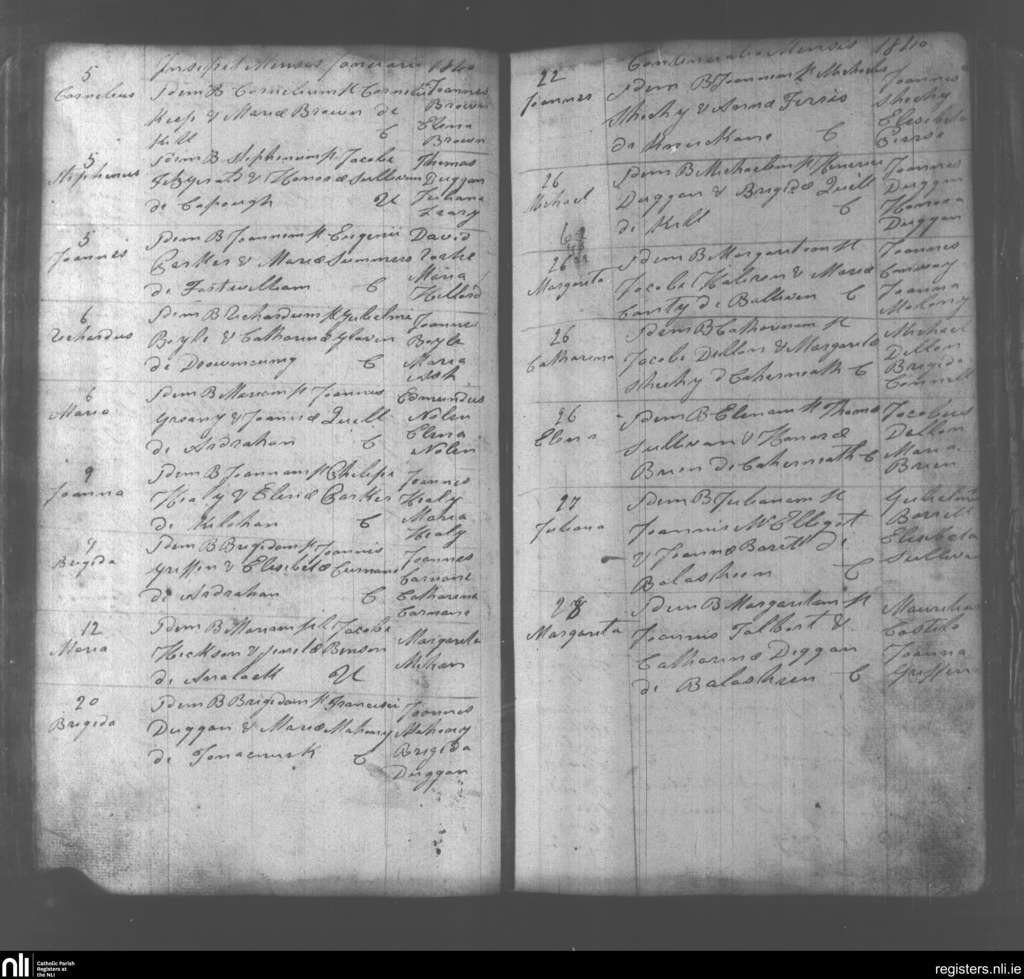 Incipit Mensis Januarii 1840
5
Cornelius
Idem B Cornelium fl Cornelii
Keep & Mariæ Brown de
Hill C
Joannes
Brown
Elena
Brown
5
Stephenus
Idem B Stephenum fl Jacobi
Fitzgerald & Honoræ Sullivan
de U
Thomas
Duggan
Juliana
Leary
5
Joannes
Idem B Joannem fl Eugenii
Parker & Mariæ Summers
de Fortwilliam C
David
Maria
6
Richardus
Idem B Richardum fl Gulielmi
Boyle & Catharinæ Glavin
de C
Joannes
Boyle
Maria
Ash
6
Maria
Idem B Mariam fl Joannis
& Joannæ Quill
de Ardrahan C
Edmundus
Nolan
Elena
Nolen
9
Joanna
Idem B Joannam fl Philipi
Healy & Elenæ Parker
de Kilehan C
Joannes
Healy
Maria
Healy
9
Brigida
Idem B Brigidam fl Joannis
Griffen & Elisabetæ
de Ardrahan C
Joannes
Catharina
12
Maria
Idem B Mariam fl Jacobi
Hickson & Benson
de U
Margareta
Mehan
20
Brigida
Idem B Brigidam fl Francisci
Duggan & Mariæ Mahony
de C
Joannes
Mahony
Brigida
Duggan
Continuatio Mensis 1840
22
Joannes
Idem B Joannem fl Michaelis
Shechy & Annæ Ferris
de C
Joannes
Shechy
Elesibeta
Pierse
26
Michael
Idem B Michaelem fl
Duggan & Brigidæ Quill
de Hill C
Joannes
Duggan
Honora
Duggan
26
Margarita
Idem B Margaritam fl
Jacobi & Mariæ
de C
Joannes
Conway
Joanna
Malony
26
Catharina
Idem B Catharinam fl
Jacobi Dillon & Margaritæ
Shechy d Caherneath C
Michael
Dillon
Brigida
Connell
26
Elena
Idem B Elenam fl Thomæ
Sullivan & Honoræ
Brien de Caherneath C
Jacobus
Dillon
Maria
Brien
27
Juliana
Idem B Julianam fl
Joannis McElligot
& Joannæ Barrett de
Balasheen C
Gulielmus
Barrett
Elisibeta
Sullivan
28
Margarita
Idem B Margaritam fl
Joannis Talbert &
Catharinæ Diggan
de Balasheen C
Mauritius
Costelo
Joanna
Griffen
nli Catholic Parish
Registers at
the NLI
registers.nli.ie